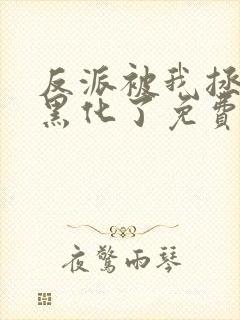 反派被我拯
黑化了免费
夜惊雨琴